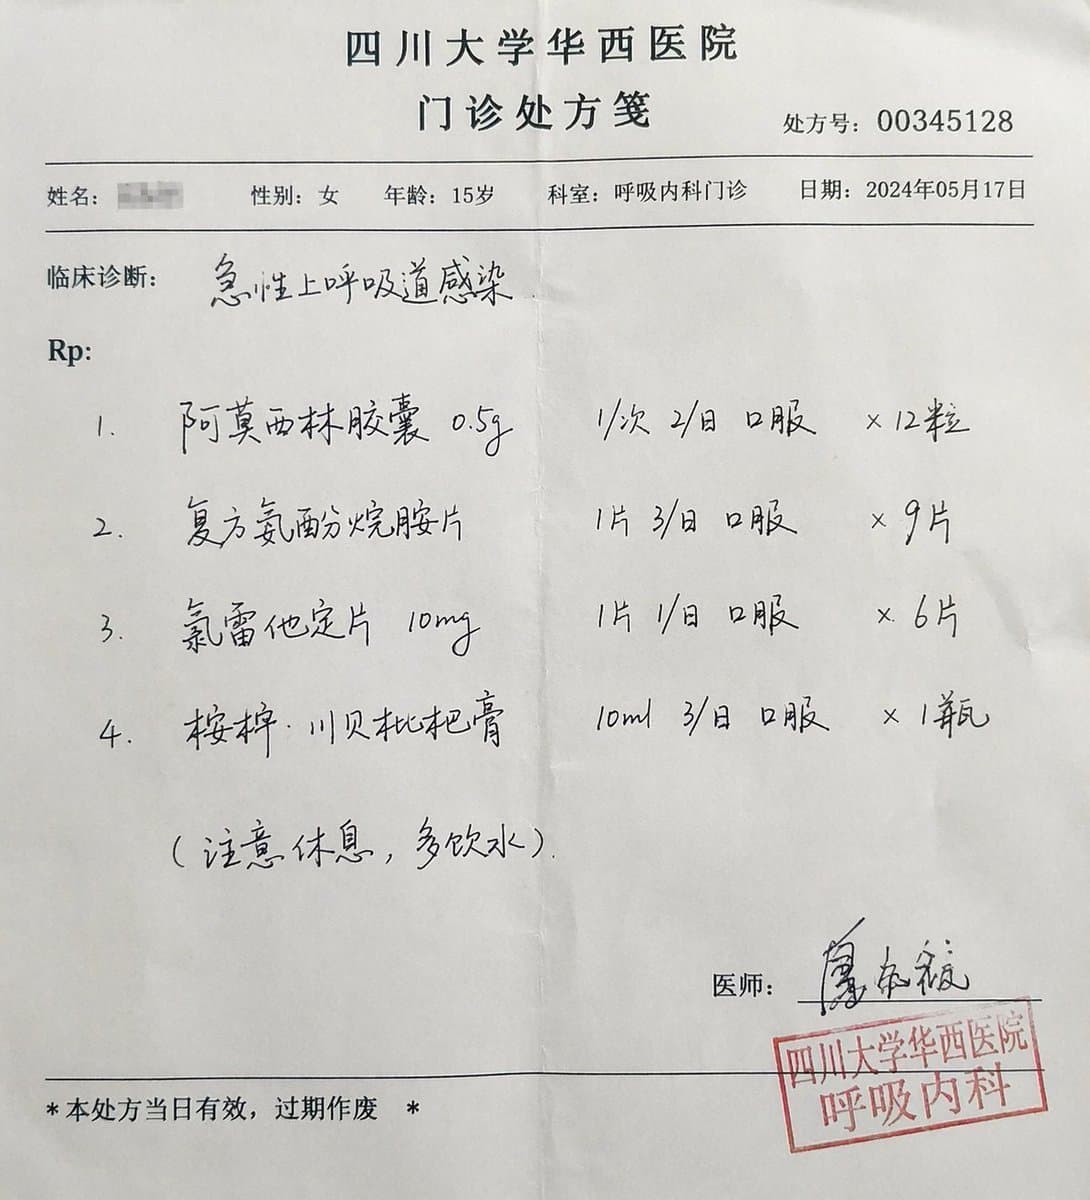 四川大学华西医院
门诊处方笺
处方号：00345128
姓名： 性别：女 年龄：15岁 科室：呼吸内科门诊 日期：2024年05月17日
临床诊断： 急性上呼吸道感染
Rp:
1. 阿莫西林胶囊 0.5g 1/次 2/日 口服 ×12粒
2. 复方氨酚烷胺片 1片 3/日 口服 ×9片
3. 氯雷他定片 10mg 1片 1/日 口服 ×6片
4. 川贝枇杷膏 10ml 3/日 口服 ×1瓶
（注意休息，多饮水）.
医师：
四川大学华西医院
呼吸内科
*本处方当日有效，过期作废 *